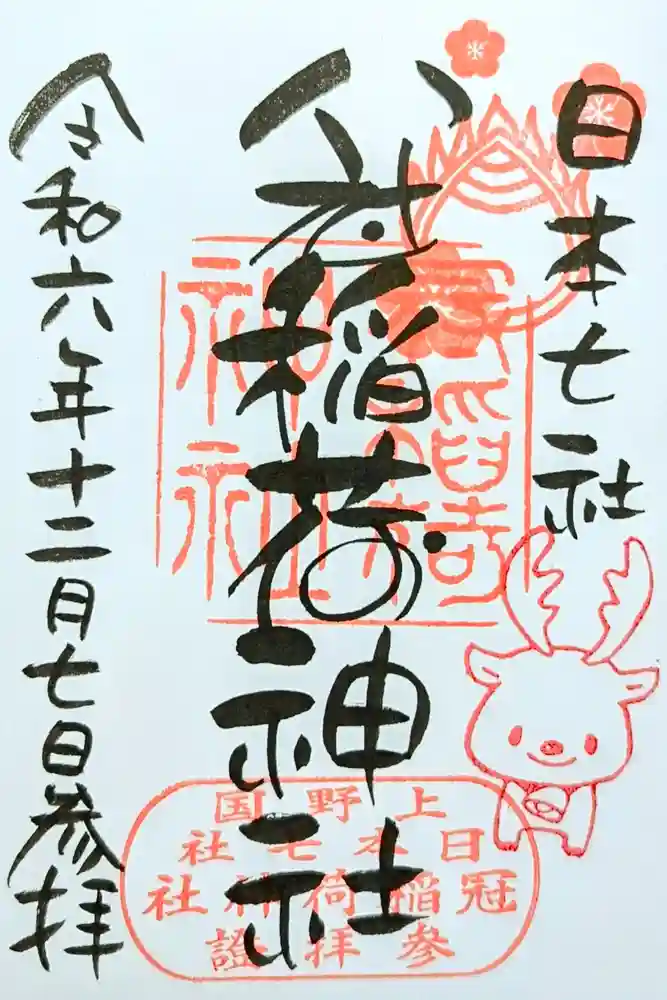 日本七社
冠稲荷神社
令和六年十二月七日参拝
上野国
日本七社
冠稲荷神社
参拝證